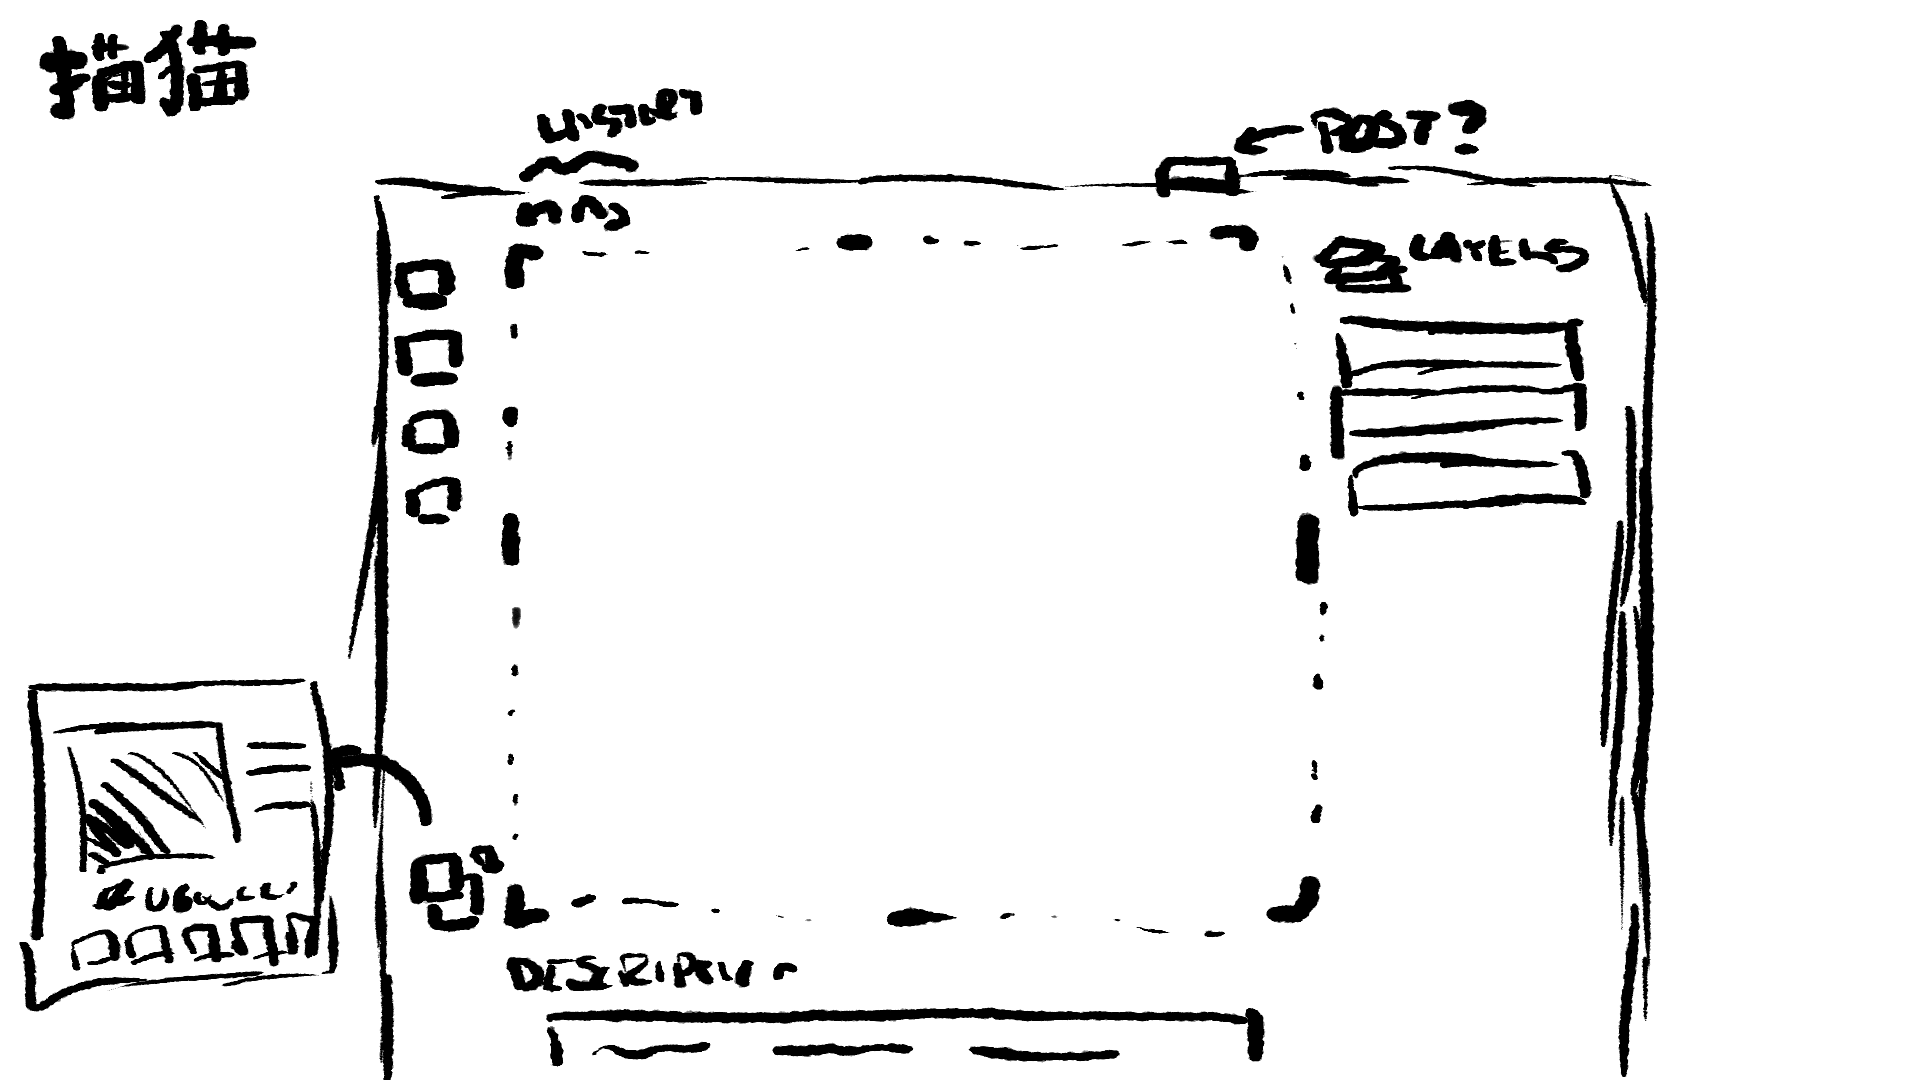 描猫
HISTORY
POST?
LAYERS
DESCRIPTION